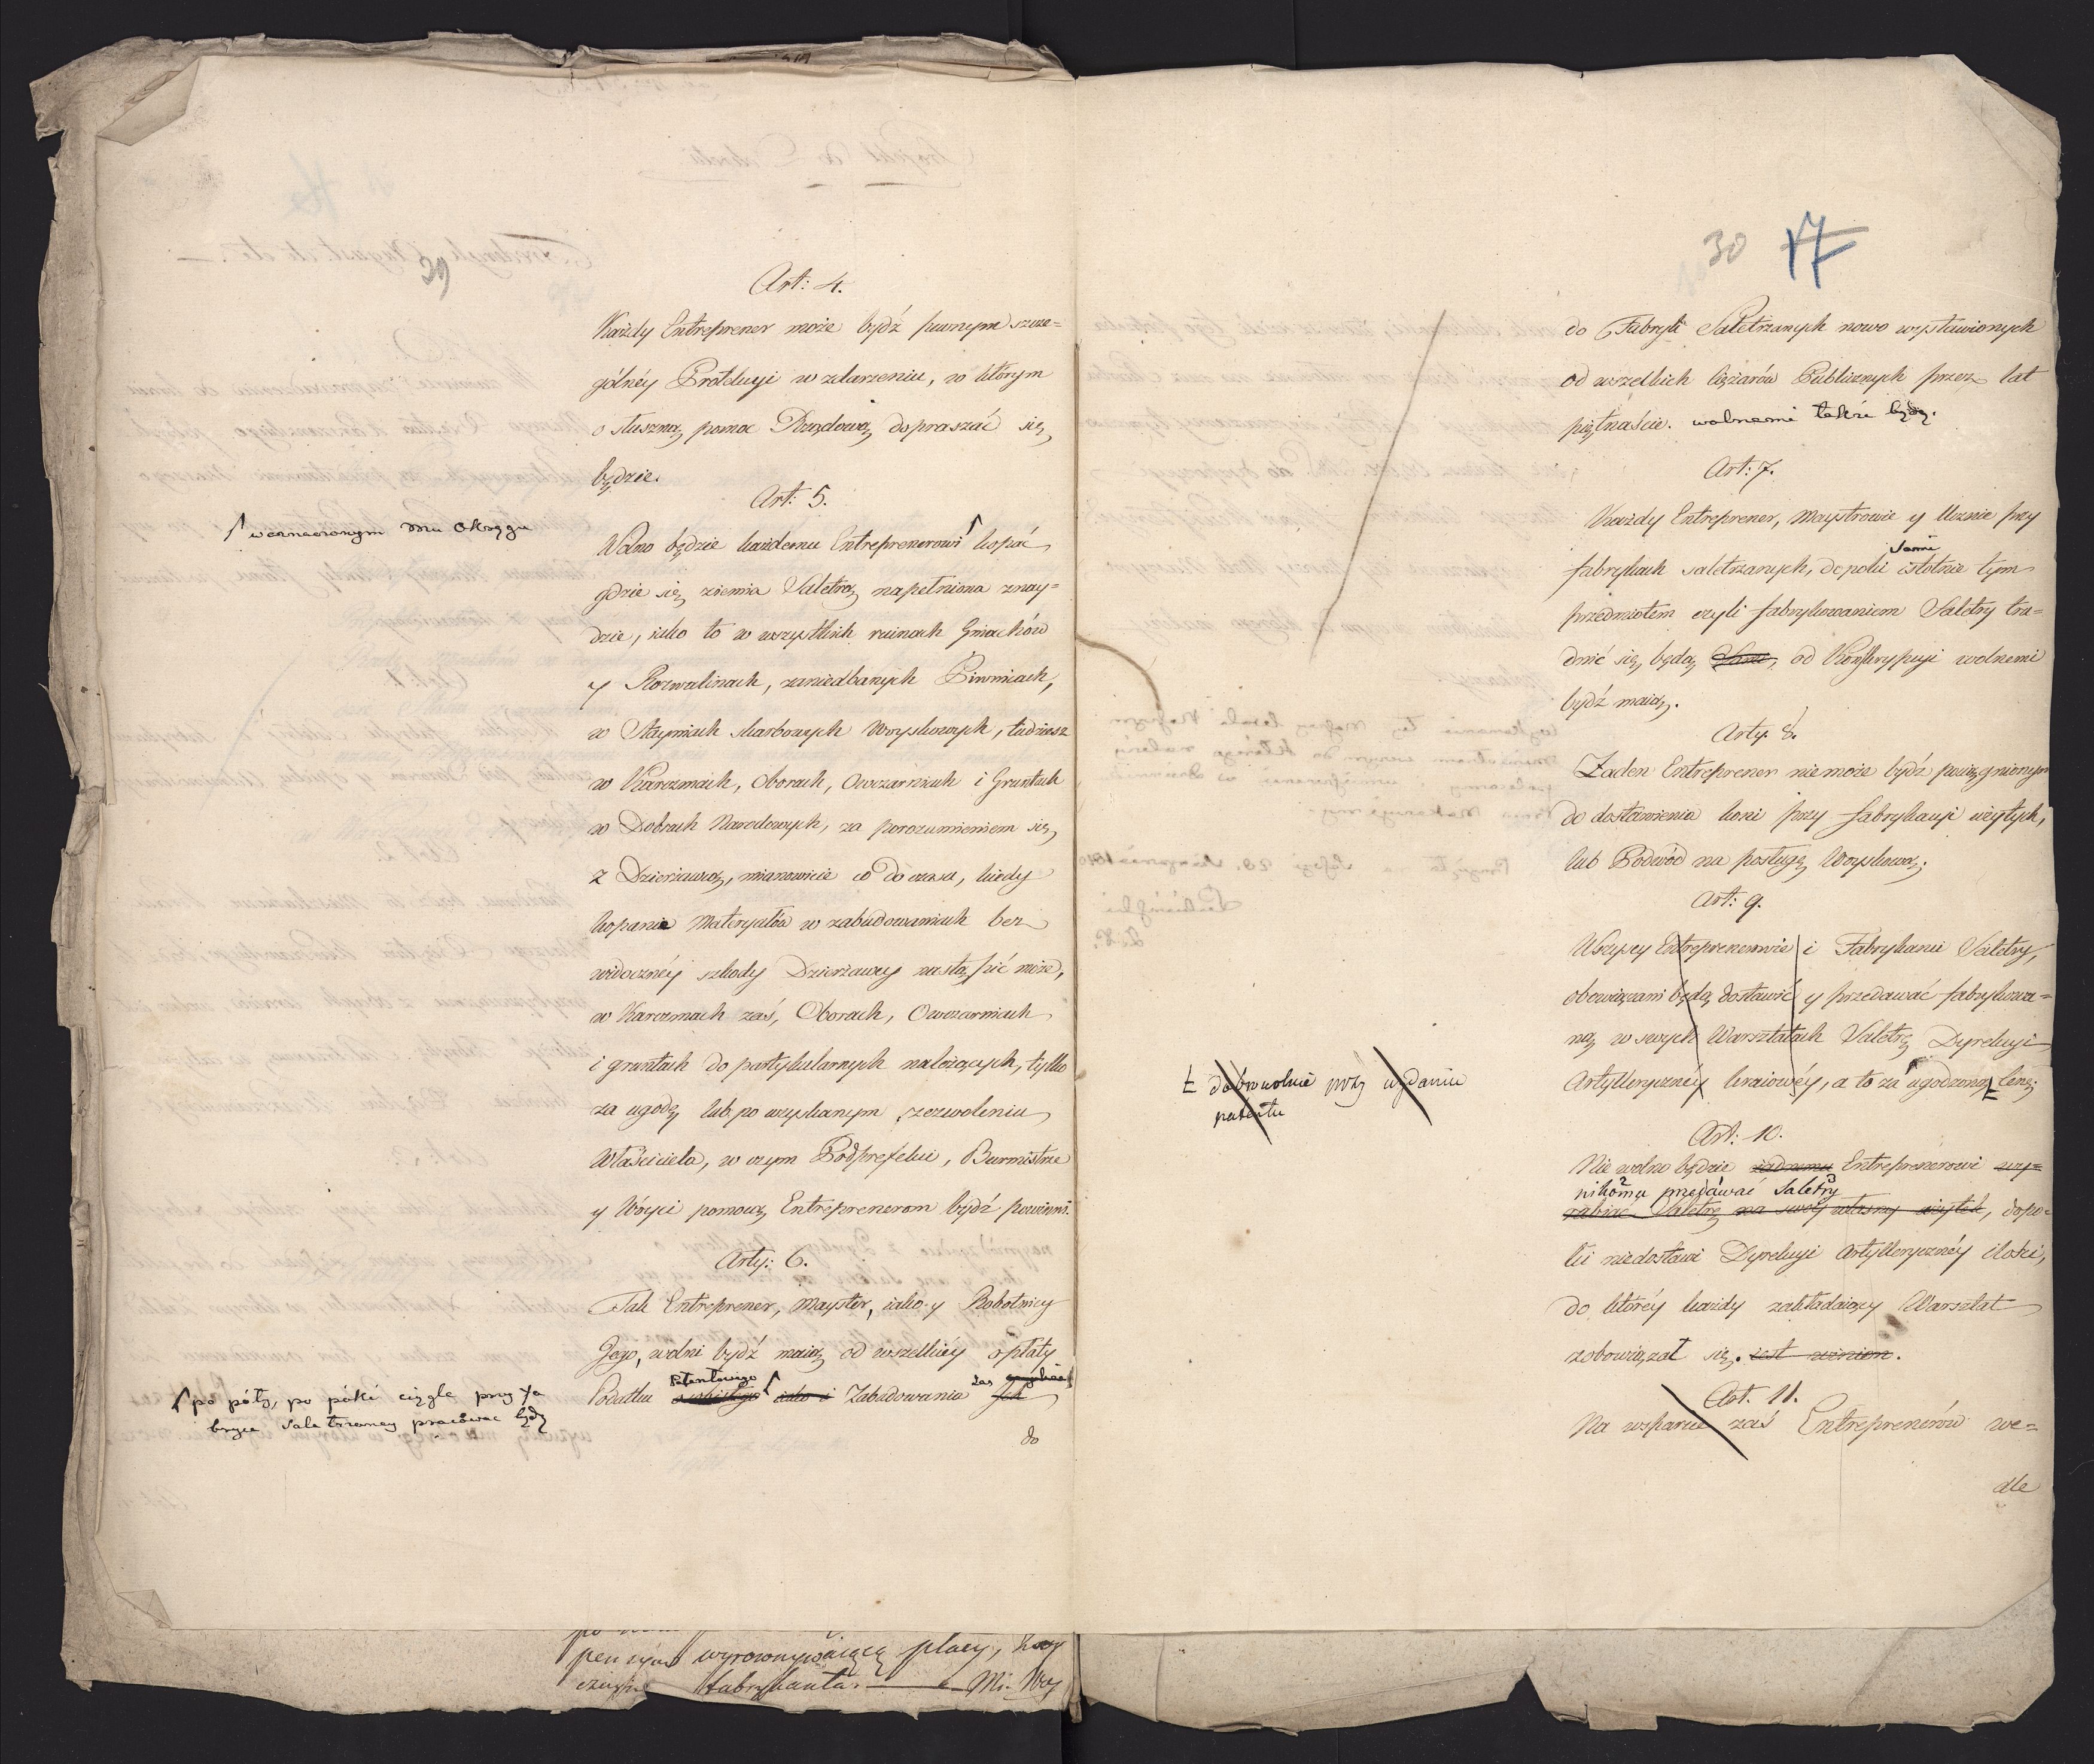 29
Art: 4.
Każdy Entreprener może bydź pewnym szcze=
gólnéy Protekcyi w zdarzeniu, w którym
o słuszną pomoc Rządową dopraszać się
będzie.
Art: 5.
⌈ wyznaczonym mu Okręgu
Wolno będzie każdemu Entreprenerowi ⌈ kopać
gdzie się ziemia Saletrą napełniona znay=
dzie, jako to w wszystkich ruinach Gmachów
y Rozwalinach, zaniedbanych Piwnicach,
w Stayniach skarbowych Woyskowych, tudziesz
w Karczmach, Oborach, Owczarniach i Gruntach
w Dobrach Narodowych, za porozumieniem się
z Dzierżawcą, mianowicie co do czasu, kiedy
kopanie Materyałów w zabudowaniach bez
widocznéy szkody Dzierżawcy nastąpić może,
w Karczmach zaś, Oborach, Owczarniach
i gruntach do partykularnych należących, tylko
za ugodą lub po uzyskanym zezwoleniu
Właściciela, w czym Podprefekci, Burmistrze
y Wóyci pomocą Entreprenerom bydź powinni.
Arty: 6.
Tak Entreprener, Mayster, jako y Robotnicy
Jego, wolni bydź maią od wszelkiéy opłaty
Patentowego zas
Podatku osobistego ⌈ jako i Zabudowania Ich
⌈ po póty, po póki ciągle przy fa
bryce Saletrzaney pracować będą
do
pensyą wyrownywaiącą płacy,
fabrykanta. Mi. Woy
30 17
do Fabryk Saletrzanych nowo wystawionych
od wszelkich ciężarów Publicznych przez lat
piętnaście. wolnemi także będą.
Art: 7.
Każdy Entreprener, Maystrowie y Ucznie przy
Sami
fabrykach saletrzanych, dopóki istotnie tym
przedmiotem czyli fabrykowaniem Saletry tru=
dnić się będą Sami, od Konskrypcyi wolnemi
bydź maią.
Arty: 8.
Żaden Entreprener nie może bydź pociągnionym
do dostawienia koni przy fabrykacyi użytych,
lub Podwód na posługę Woyskową.
Art: 9.
Wszyscy Entreprenerowie i Fabrykanci Saletry,
obowiązani będą dostawić y przedawać fabrykowa=
ną w swych Warsztatach Saletrę Dyrekcyi
Artylleryczney kraiowéy, a to za ugodzoną cenę
Ł dobrowolnie przy wydaniu
patentu
Art: 10.
Nie wolno będzie żadnemu Entreprenerowi wy=
nikomu przedawać Saletry
rabiać Saletrę na swóy własny użytek, dopó=
ki niedostawi Dyrekcyi Artyllerycznéy ilości,
do któréy każdy zakładaiący Warsztat
zobowiązał się. iest winien.
Art. 11.
Na wsparcie zaś Entreprenerów we=
dle